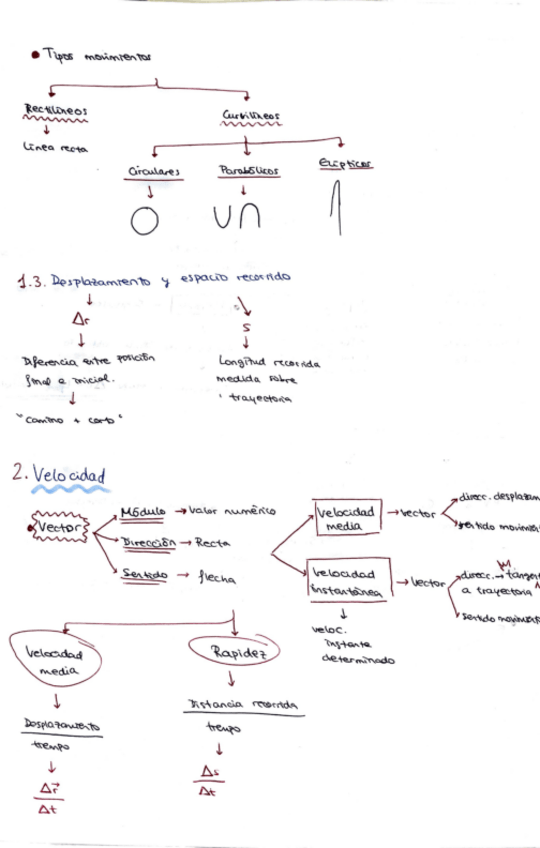 • Tipos movimientos
Rectilíneos
Curvilíneos
Línea recta
Circulares
Parabólicos
Elípticos
1.3. Desplazamiento y espacio recorrido
Δr
s
Diferencia entre posición
final e inicial.
"Camino + corto"
Longitud recorrida
medida sobre
trayectoria
2. Velocidad
Vector
Módulo → Valor numérico
Dirección → Recta
Sentido → flecha
Velocidad
media
→ vector
direcc. desplazam
sentido movimien
Velocidad
instantánea
→ vector
direcc. → tangen
a trayectoria
sentido movimien
veloc.
instante
determinado
Velocidad
media
Rapidez
Desplazamiento
tiempo
Δr⃗
Δt
Distancia recorrida
tiempo
Δs
Δt